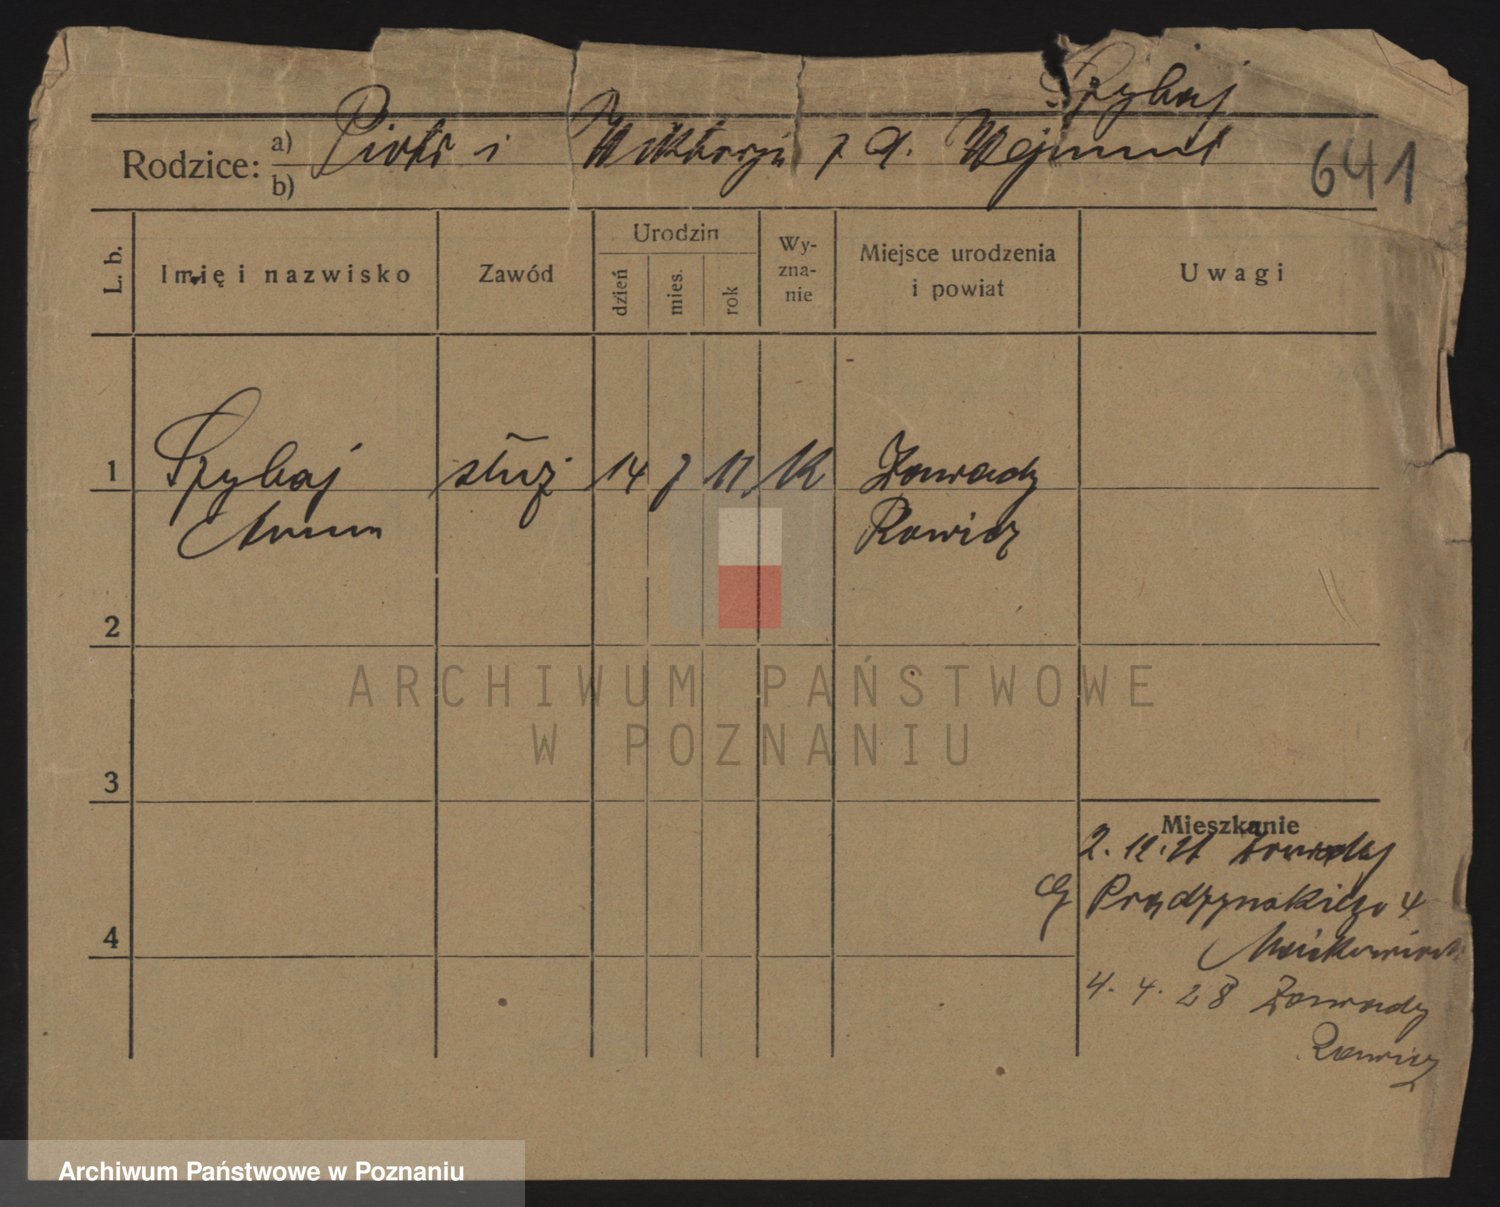 Szybaj
Rodzice: a) Piotr i Wiktorja z d. Wejmut
b)
641
L. b.
Imię i nazwisko
Zawód
Urodzin
dzień
mies.
rok
Wy-
zna-
nie
Miejsce urodzenia
i powiat
Uwagi
1 Szybaj służ 14 7 11 K Zawady
Anna Rawicz
2
3
4
Mieszkanie
Zawady
Prądzynskiego 4
4. 4. 28 Zawady
Rawicz
ARCHIWUM PAŃSTWOWE
W POZNANIU
Archiwum Państwowe w Poznaniu